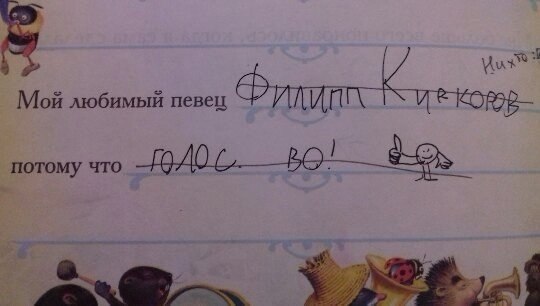 Никто :D
Мой любимый певец Филипп Киркоров
потому что голос ВО!